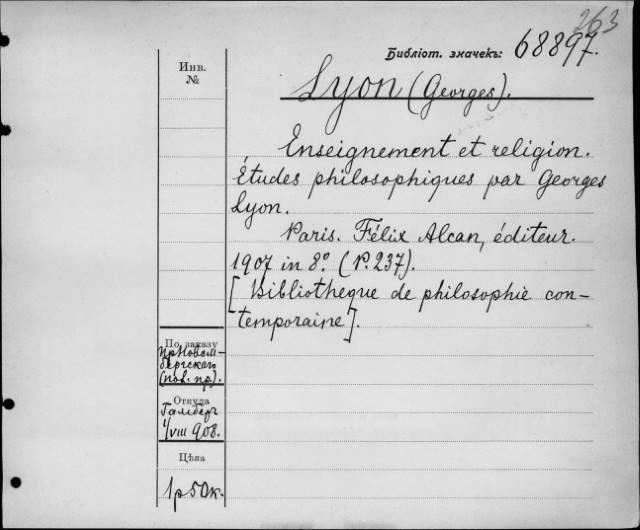 263
Библіот. значекъ: 68897.
Инв.
№
Lyon (Georges).
Enseignement et religion.
Études philosophiques par Georges
Lyon.
Paris. Félix Alcan, éditeur.
1907 in 8º. (P. 237).
[Bibliothèque de philosophie con-
temporaine].
По заказу
пр. Новом-
бергскаго
(пов. пр.).
Откуда
Гамберъ
1/VIII 908.
Цѣна
1 р 50 к.